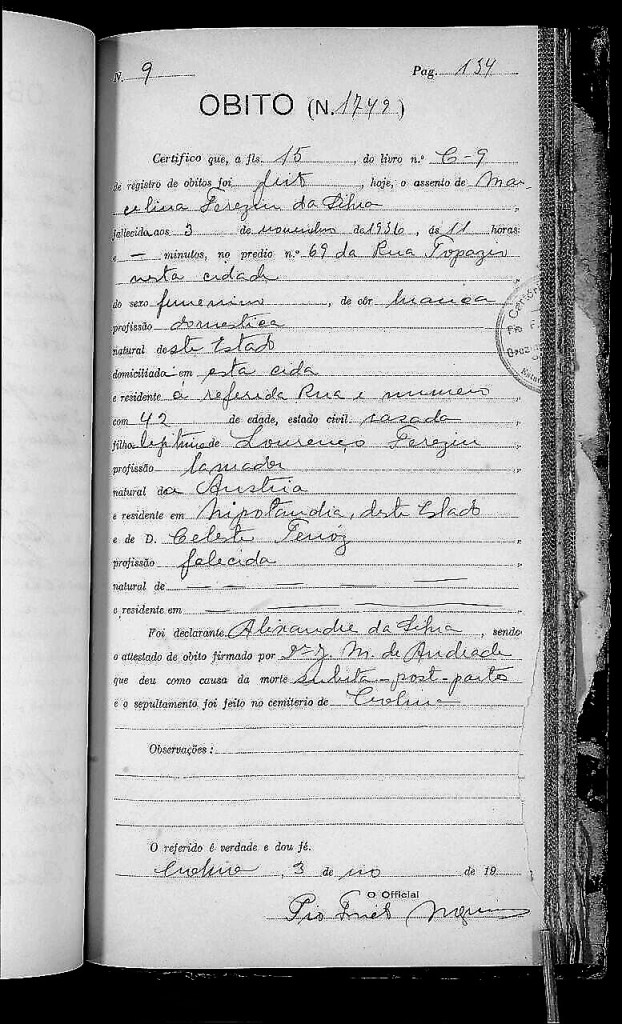 N. 9 Pag. 134
OBITO (N. 1742)
Certifico que, a fls. 15, do livro n.º C-9
de registro de obitos foi feito, hoje, o assento de Mar-
celina Terezin da Silva,
fallecida aos 3 de novembro de 1936, ás 11 horas
e — minutos, no predio n.º 69 da Rua Topazio
nesta cidade
do sexo feminino, de côr branca
profissão domestica
natural deste Estado
domiciliada em esta cida
e residente á referida Rua e numero
com 42 de edade, estado civil casada
filha legitima de Lourenço Terezin
profissão lavrador
natural da Austria
e residente em deste Estado
e de D. Celeste
profissão falecida
natural de — — — —
e residente em — — —
Foi declarante Alexandre da Silva, sendo
o attestado de obito firmado por Dr. J. M. de Andrade
que deu como causa da morte subita-post-parto
e o sepultamento foi feito no cemiterio de
Observações:
O referido é verdade e dou fé.
, 3 de no de 19
O Official
Pio